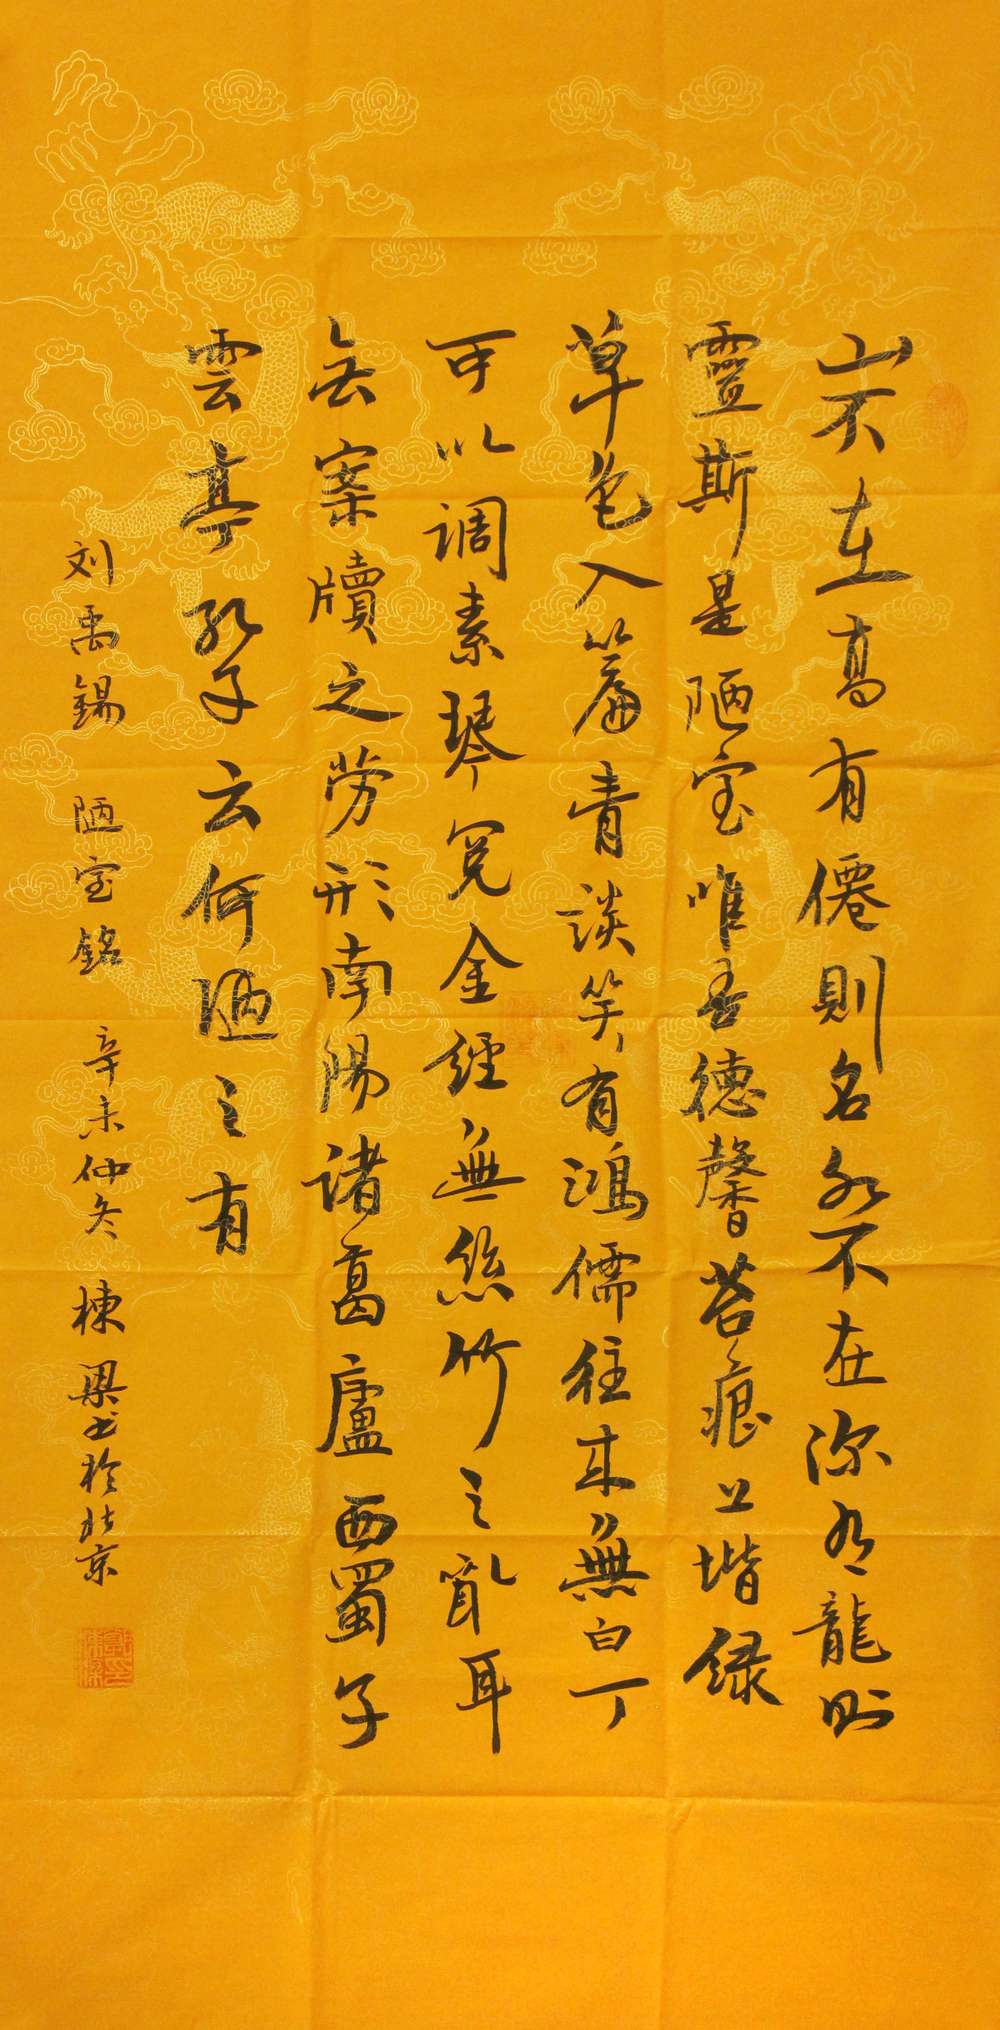 山不在高有僊則名水不在深有龍則
靈斯是陋室唯吾德馨苔痕上堦緑
草色入簾青談笑有鴻儒往来無白丁
可以調素琴閱金經無絲竹之亂耳
無案牘之勞形南陽諸葛廬西蜀子
雲亭孔子云何陋之有
刘禹錫 陋室銘 辛未仲冬 棟梁书於北京